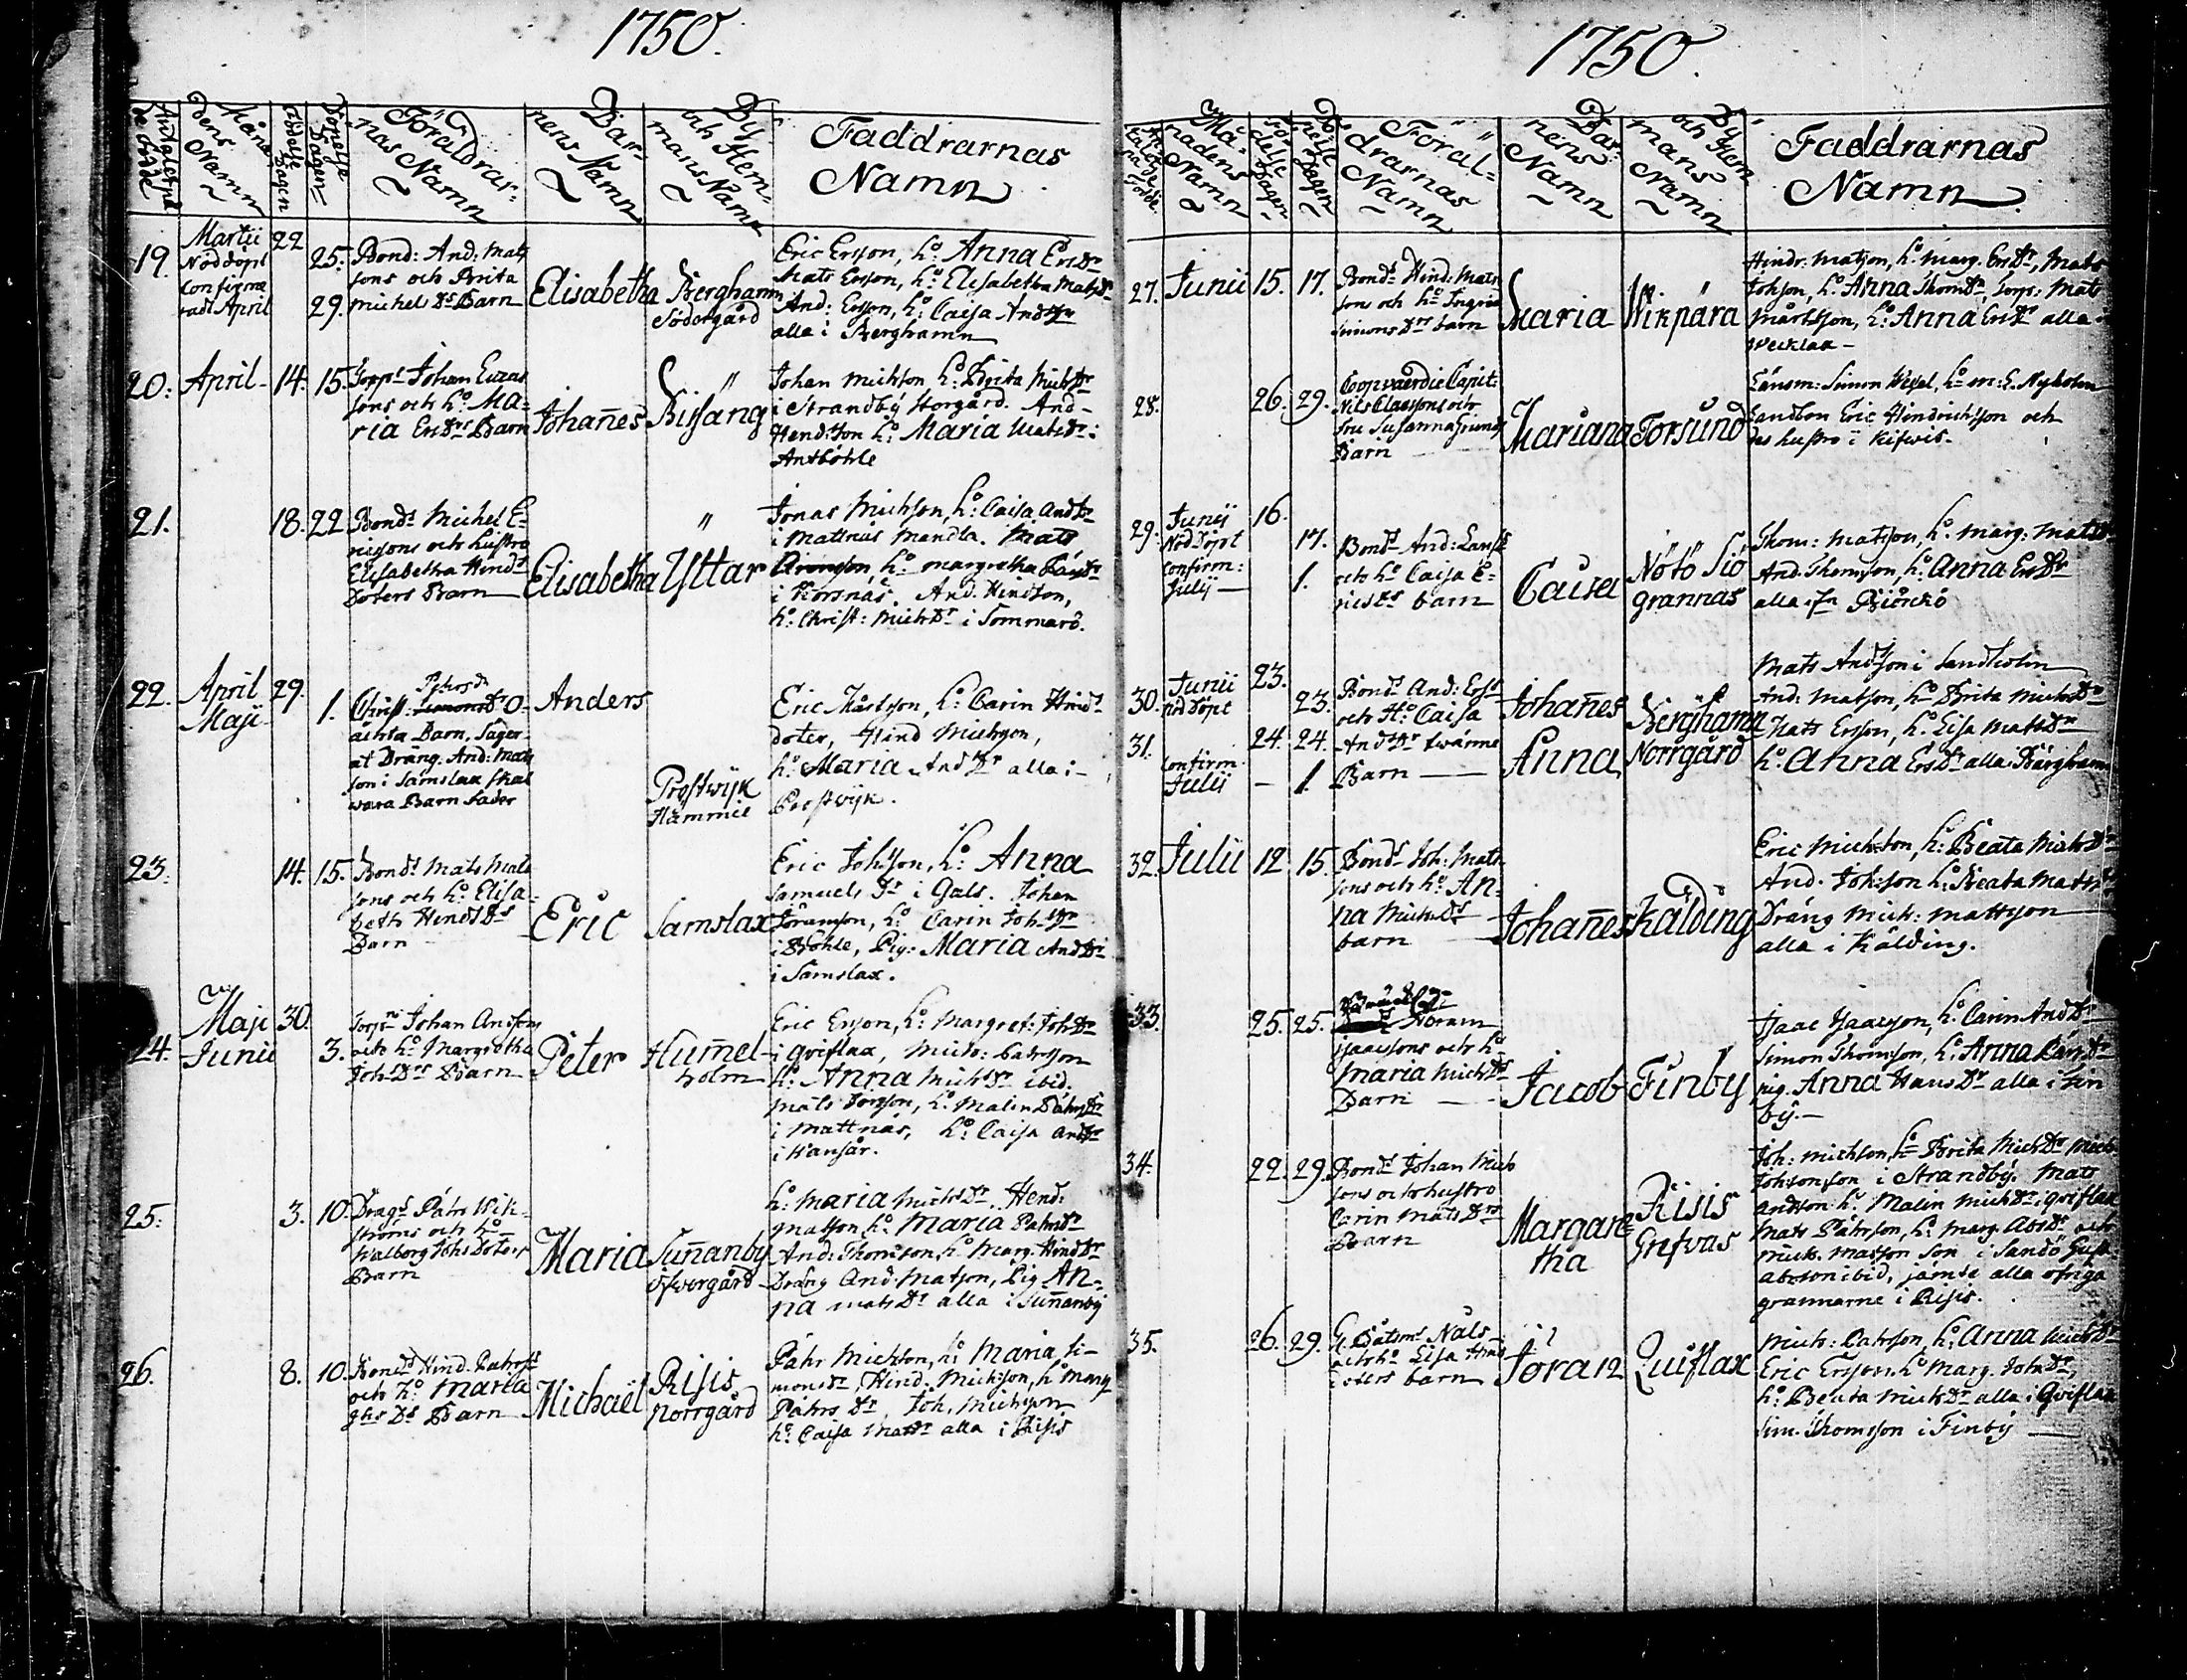 1750.
Måna-
dens
Namn
Födelse
Dagen
Döpelse
Dagen
Föräldrar-
nas Namn
Bar-
nens Namn
By
och Hem-
mans Namn
Faddrarnas
Namn
19.
Martii
Nöddöpt
confirme
radt April
22
25.
29.
Bond: And: Mats
sons och Brita
Michels Dr Barn
Elisabetha
Berghamn
Södergård
Eric Ersson, ho Anna ErsDr
Mats Ersson, ho Elisabetha MatsDr
And: Ersson, ho Caisa AndDr
alla i Berghamn
20.
April
14.
15.
Johan
sons och ho Ma-
ria ErsDrs Barn
Johanes
Bissäng
Johan Michson, ho Brita MichDr
i Strandby Norgård. And-
Hendsson ho Maria MatsDr
Antböhle
21.
18.
22
Bonds Michel E-
ricssons och hustro
Elisabetha Hinds
Doters Barn
Elisabetha
Yttar
Jonas Michson, ho Caisa AndDr
i Mattnäs Mandla. Mats
ho margretha
i Korsnäs. And. Hindson,
ho Christ: MichDr i Sommarö.
22.
April
Maji
29.
1.
Christ: O-
ächta Barn, säger
at Dräng. And: Mats
son i Sämslax skal
wara Barn fader
Anders
Prostwijk
Hämmie
Eric Mårtsson, ho Carin Hind
doter, Hind Michsson,
ho Maria AndDr alla i
Prostvijk.
23.
14.
15.
Bonds Mats Mats
sons och ho Elisa-
beth HindsDrs
Barn
Eric
Samslax
Eric Johsson, ho Anna
Samuels Dr i Gals. Johan
Göransson, ho Carin JohsDr
i Böhle, Pig: Maria AndDr
i Samslax.
24.
Maji
Junii
30.
3.
Johan Andsons
och ho Margretha
JohsDrs Barn
Peter
Humel-
holm
Eric Ersson, ho Margret: JohDr
i Qviflax, Mich: Pahrsson
ho Anna MichDr ibid.
Mats ho Malin PährsDr
i Mattnäs, ho Caisa AndDr
i Känsår.
25.
3.
10.
Drags Pähr Wik-
ströms och ho
Walborg Johs Doters
Barn
Maria
Sunanby
öfwergård
ho Maria MichsDr. Hend:
Matsson ho Maria PahrsDr
And: Thomsson ho Marg. HindDr
Dräng And: Matson, Pig An-
na MatsDr alla i Sunanby
26.
8.
10.
Bonds Hind. Pahrss
och ho Maria
Drs Barn
Michaël
Risis
norrgård
Pähr Michson, ho Maria Si-
monsDr, Hind. Michsson, ho Marg
Pährs Dr, Joh. Michsson
ho Caisa MatsDr alla i Risis
1750.
Må-
nadens
Namn
Fö-
delse
Dagen
Dö-
pelse
Dagen
Föräl-
drarnas
Namn
Bar-
nens
Namn
By
och Hem-
mans
Namn
Faddrarnas
Namn.
27.
Junii
15.
17.
Bonds Hind: Mats
son och ho Ingrid
Simons Drs barn
Maria
Wikpära
Hindr: Matsson, ho Marg. ErsDr, Mats
Johson, ho Anna ThomDr, Torp: Mats
Mårtsson, ho Anna ErsDr alla i
28.
26.
29.
Coopvaerdie Capit:
Nils Claessons och
fru Susanna
Barn
Mariana
Torsund
Länsm: Simon ho M: E. Nyholm
Landbon Eric Hindrichsson och
des hustro i Kifwis.
29.
Junij
Nöd Döpt
confirm:
Julij
16.
17.
1.
Bonds And:
och ho Caisa E-
ricsDrs barn
Caisa
Nötö Siö
grannas
Thom: Matsson, ho Marg: Mats
And. Thomsson, ho Anna ErsDr
alla ifr Biörckö
30.
31.
Junii
nöd döpt
confirm
Julij
23.
24.
23.
24.
1.
Bonds And: Erss
och Ho Caisa
AndsDr twänne
Barn
Johanes
Anna
Berghamn
Norrgård
Mats Andsson i Landholm
And: Matsson, ho Brita MichsDr
Mats Ersson, ho Lisa MatsDr
ho Anna ErsDr alla Bärghamn
32.
Julii
12
15.
Bonds Joh: Mats
sons och ho An-
na MichelsDrs
barn
Johanes
Kälding
Eric Michson, ho Beata MichDr
And. Johsson ho Beata Mats
Dräng Mich: Mattsson
alla i Kälding.
33.
25.
25.
Abram
Isaacsons och ho
Maria MichsDrs
Barn
Jacob
Finby
Isaac Isaacsson, ho Carin AndDr
Simon Thomsson, ho Anna
pig. Anna HansDr alla i Fin
by.
34.
22.
29.
Bonds Johan Mich
sons och hustro
Carin MatsDrs
Barn
Margare-
tha
Risis
Grefvas
Joh: Michson ho Brita MichDr Mich
Johsonsson i Strandby. Mats
Andson ho Malin MichDr i qviflax
Mats Pährson, ho Marg. AbsDr och
Mich. Matsson son i Sandö Gust.
absson ibid, jämte alla öfriga
grannarne i Risis.
35.
26.
29.
Båtsms Nåls
och ho Lisa Hind
doters barn
Jöran
Quiflax
Mich: Pahrsson, ho Anna MichDr
Eric Ersson ho Marg. JohsDr,
ho Beata MichDr alla i Qviflax
Sim. Thomsson i Finby